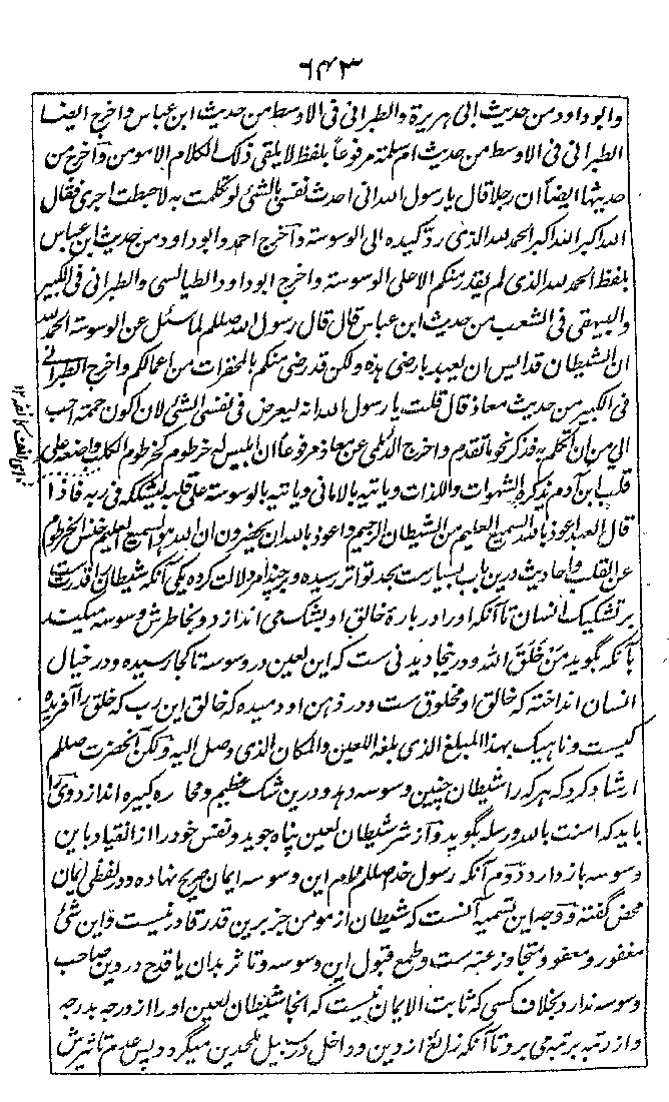 ۶۴۳
وابو داود من حدیث ابی هریرة والطبرانی فی الاوسط من حدیث ابن عباس واخرج ایضا
الطبرانی فی الاوسط من حدیث ام سلمة مرفوعاً بلفظ لا یلقی ذلک الکلام الا مومن وآخرج من
حدیثها ایضاً ان رجلا قال یا رسول الله انی احدث نفسی بالشئ لو تکلمت به لاحبطت اجری فقال
الله اکبر الله اکبر الحمد لله الذی رد کیده الی الوسوسة وآخرج احمد وابو داود من حدیث ابن عباس
بلفظ الحمد لله الذی لم یقدر منکم الا علی الوسوسة واخرج ابو داود الطیالسی والطبرانی فی الکبیر
والبیهقی فی الشعب من حدیث ابن عباس قال قال رسول الله صللم لما سئل عن الوسوسة الحمد لله
ان الشیطان قد ایس ان یعبد بارضی هذه ولکن قد رضی منکم بالمحقرات من اعمالکم واخرج الطبرانی
فی الکبیر من حدیث معاذ قال قلت یا رسول الله انه لیعرض فی نفسی الشئ لان اکون حممة احب
الی من ان اتکلم به فذکر نحو ما تقدم واخرج الدیلمی عن معاذ مرفوعاً ان ابلیس له خرطوم کخرطوم الکلب واضعه علی
قلب ابن آدم یذکره الشهوات واللذات ویاتیه بالامانی ویاتیه بالوسوسة علی قلبه لیشککه فی ربه فاذا
قال العبد اعوذ بالله السمیع العلیم من الشیطان الرجیم واعوذ بالله ان یحضرون ان الله هو السمیع العلیم خنس الخرطوم
عن القلب واحادیث درین باب بسیارست بحد تواتر رسیده و بر چند امر دلالت کرده یکی آنکه شیطان را قدرت ست
بر تشکیک انسان تا آنکه او را در بارهٔ خالق او بشک می اندازد و بخاطرش وسوسه میکند
بآنکه بگوید من خلق الله و درینجا دیدنی ست که این لعین در وسوسه تا کجا رسیده و در خیال
انسان انداخته که خالق او مخلوق ست و در ذهن او دمیده که خالق این رب که خلق را آفریده
کیست وناهیک بهذا المبلغ الذی بلغه اللعین والمکان الذی وصل الیه ولکن آنحضرت صللم
ارشاد کرد که هر که را شیطان چنین وسوسه دهد و درین شک عظیم و کبیره اندازد وی را
باید که امنت بالله ورسله بگوید و از شر شیطان لعین پناه جوید و نفس خود را از انقیاد باین
وسوسه باز دارد دوم آنکه رسول خدا صللم نام این وسوسه ایمان صریح نهاده و در لفظی ایمان
محض گفته و وجه این تسمیه آنست که شیطان از مومن جز برین قدر قادر نیست و این شئ
مغفور و معفو و متجاوز عنه ست و طمع قبول این وسوسه و تاثر بدان یا قدح در دین صاحب
وسوسه ندارد بخلاف کسی که ثابت الایمان نیست که آنجا شیطان لعین او را از درجه بدرجه
و از رتبه برتبه می برد تا آنکه زائغ از دین و داخل در سبیل ملحدین میگردد پس عدم تاثیرش